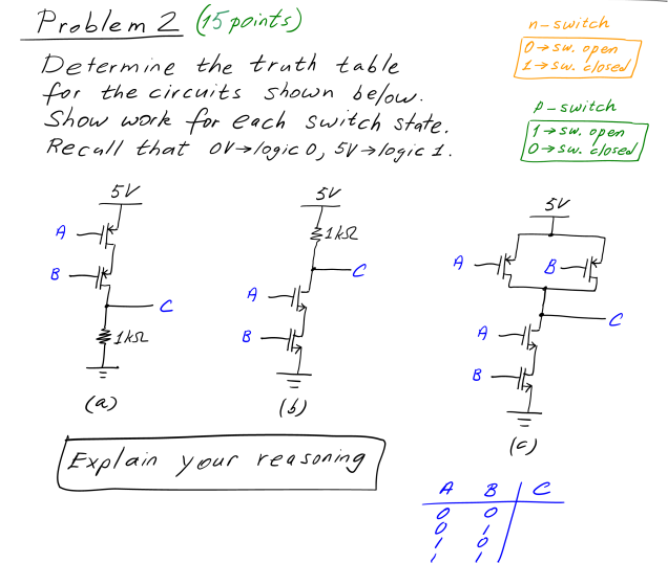 Problem 2 (15 points)
Determine the truth table
for the circuits shown below.
Show work for each switch state.
Recall that 0V→logic 0, 5V→logic 1.
n-switch
0→sw. open
1→sw. closed
p-switch
1→sw. open
0→sw. closed
5V
A
B
C
1kΩ
(a)
5V
1kΩ
C
A
B
(b)
5V
A
B
C
A
B
(c)
Explain your reasoning
A B C
0 0
0 1
1 0
1 1